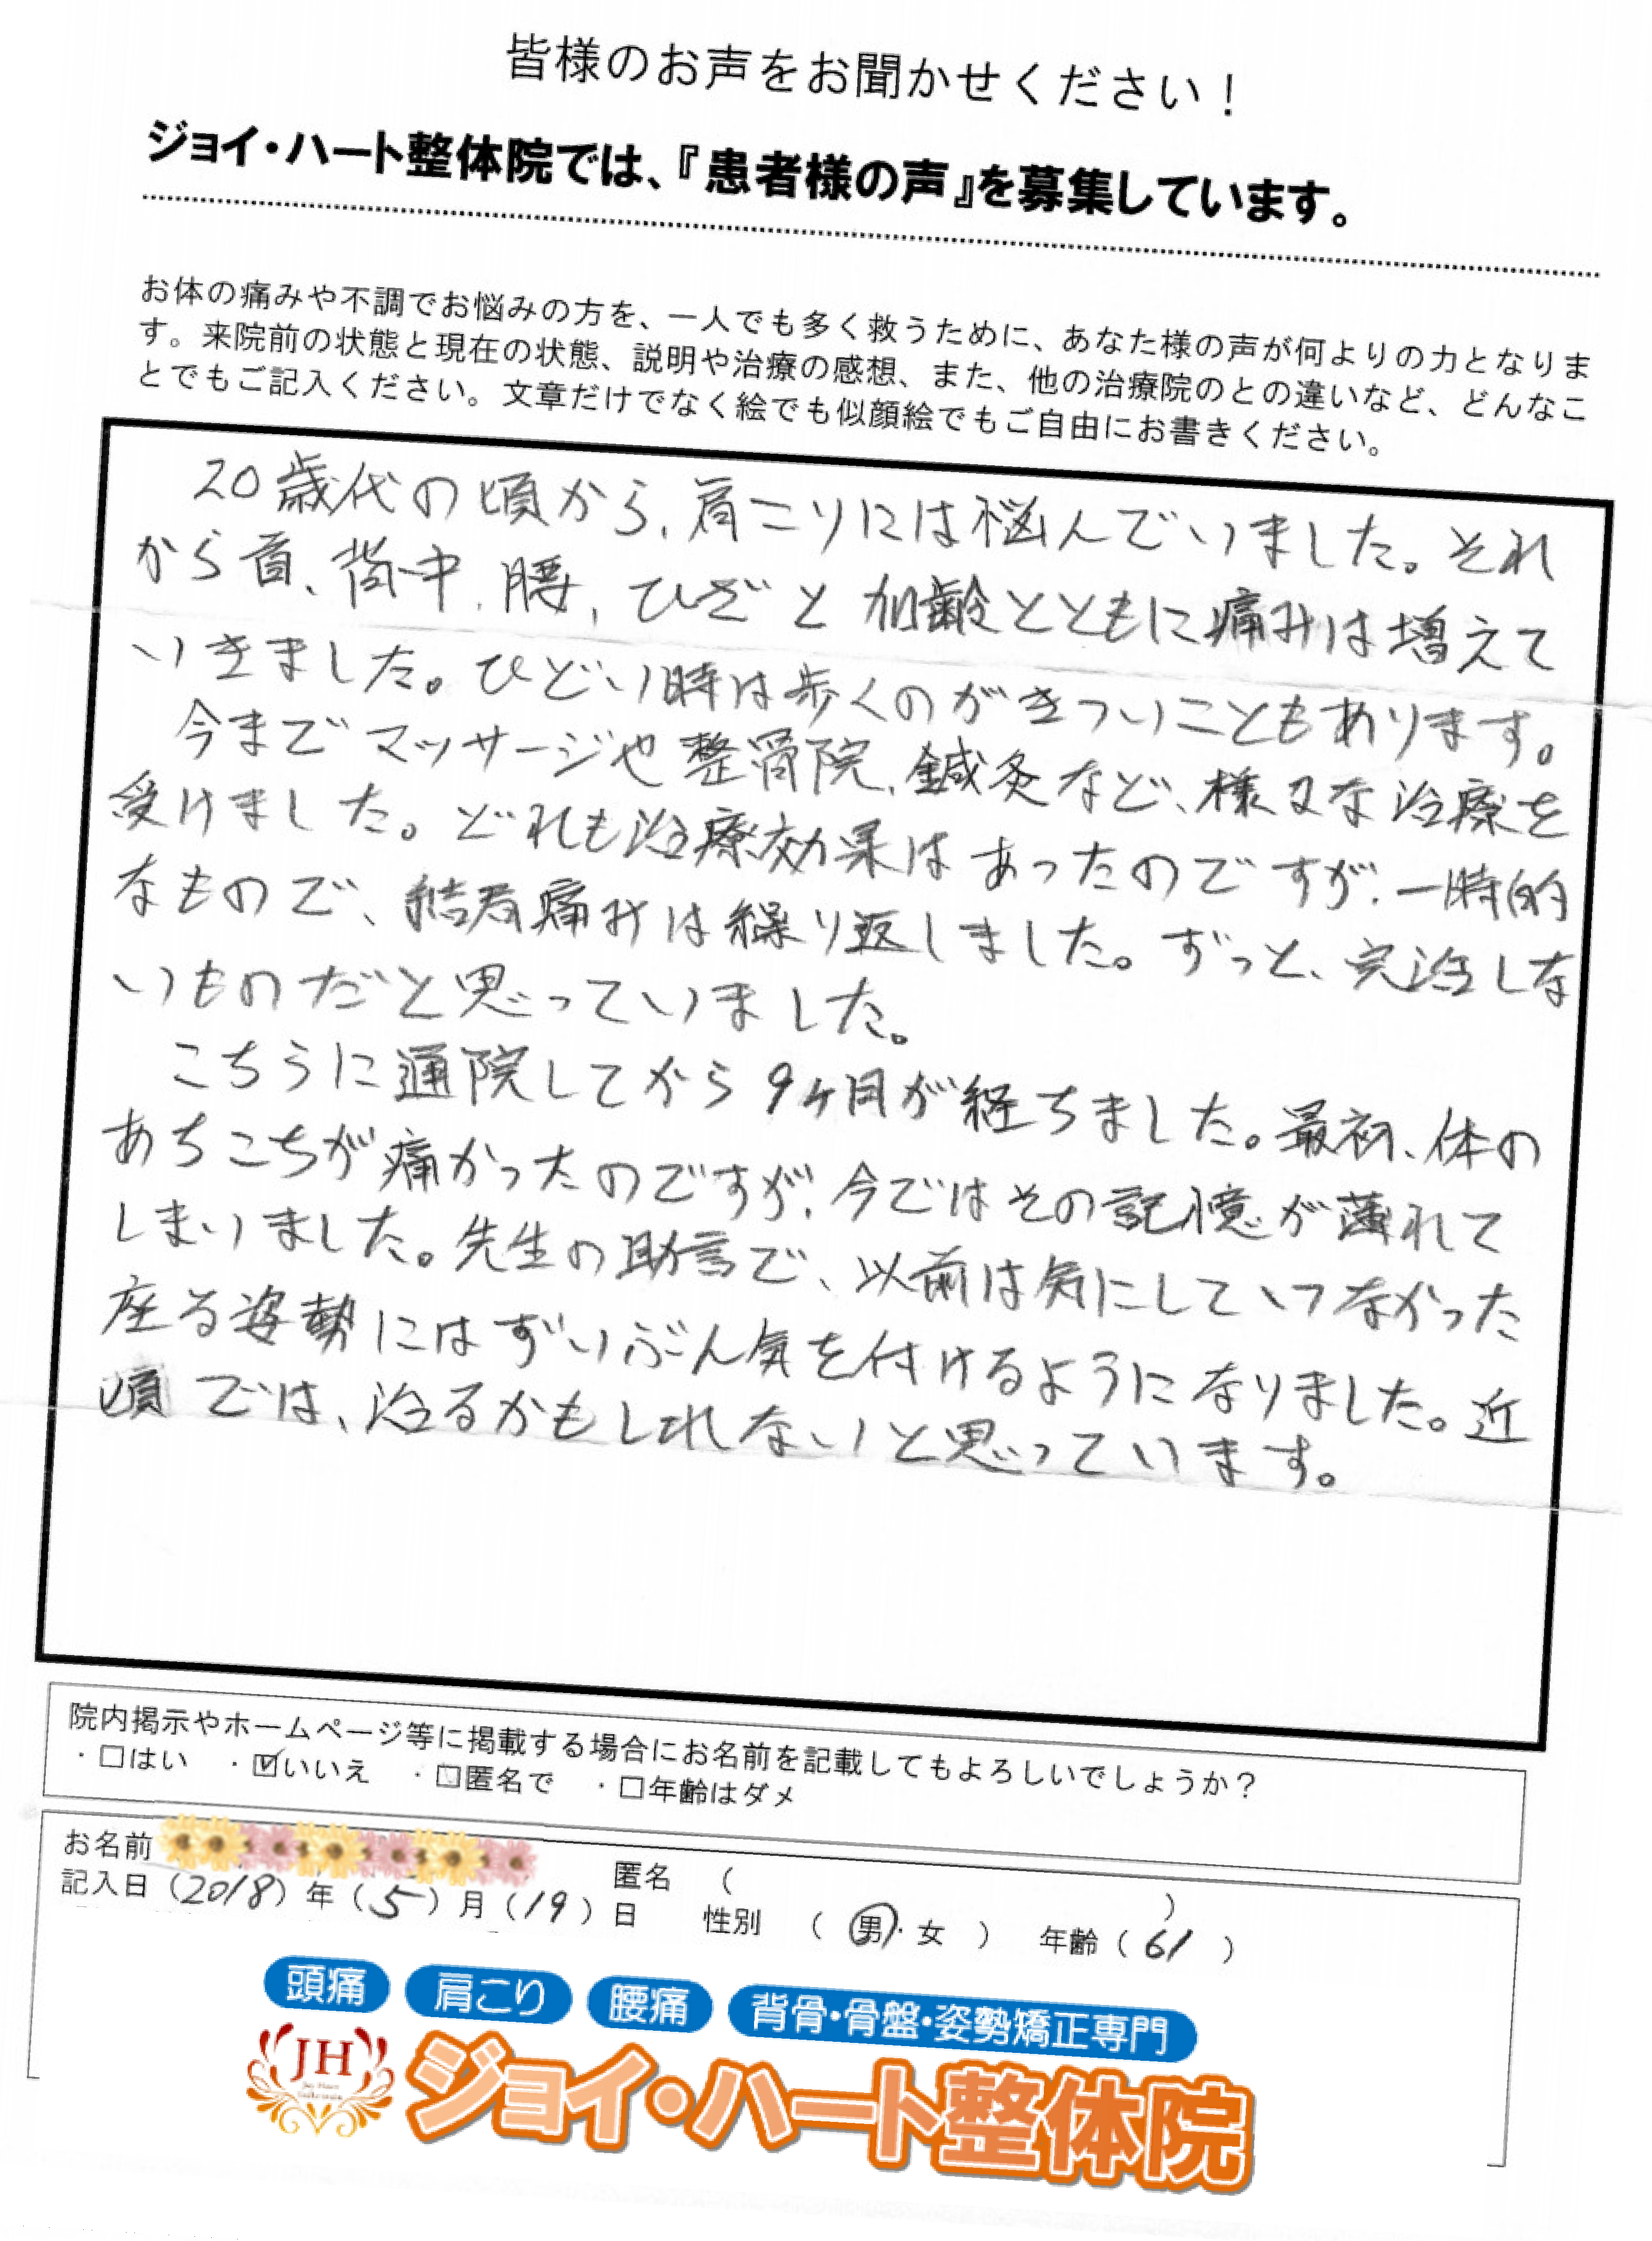 皆様のお声をお聞かせください！
ジョイ・ハート整体院では、『患者様の声』を募集しています。
お体の痛みや不調でお悩みの方を、一人でも多く救うために、あなた様の声が何よりの力となりま
す。来院前の状態と現在の状態、説明や治療の感想、また、他の治療院のとの違いなど、どんなこ
とでもご記入ください。文章だけでなく絵でも似顔絵でもご自由にお書きください。
20歳代の頃から、肩こりには悩んでいました。それ
から首、背中、腰、ひざと加齢とともに痛みは増えて
いきました。ひどい時は歩くのがきついこともあります。
今までマッサージや整骨院、鍼灸など、様々な治療を
受けました。どれも治療効果はあったのですが、一時的
なもので、結局痛みは繰り返しました。ずっと、完治しな
いものだと思っていました。
こちらに通院してから9ヶ月が経ちました。最初、体の
あちこちが痛かったのですが、今ではその記憶が薄れて
しまいました。先生の助言で、以前は気にしていなかった
座る姿勢にはずいぶん気を付けるようになりました。近
頃では、治るかもしれないと思っています。
院内掲示やホームページ等に掲載する場合にお名前を記載してもよろしいでしょうか？
・□はい ・☑いいえ ・□匿名で ・□年齢はダメ
お名前 匿名 （ ）
記入日（2018）年（5）月（19）日 性別 （ 男・女 ） 年齢（ 61 ）
頭痛 肩こり 腰痛 背骨・骨盤・姿勢矯正専門
JH ジョイ・ハート整体院